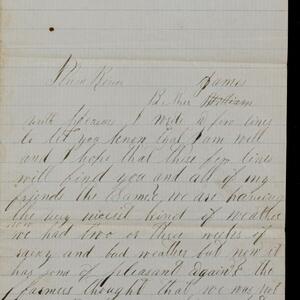 Plum River James
Brother William
with pleasure I wrote a few lines
to let you know that I am well
and I hope that these few lines
will find you and all of my
friends the same, we are having
the very nicest kind of weather
we had two or three weeks of
rainy and bad weather but now it
has some of pleasant again & the
farmers thought that we was not